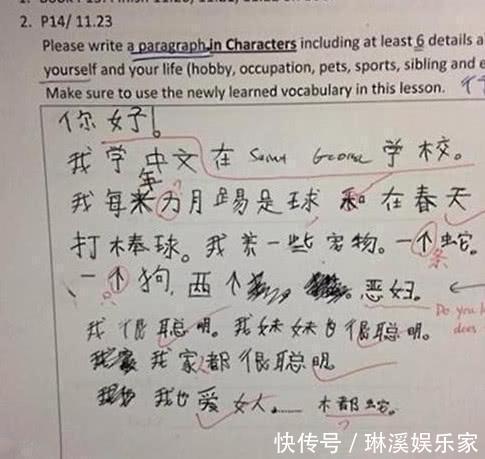 2. P14/ 11.23
Please write a paragraph in Characters including at least 6 details a
yourself and your life (hobby, occupation, pets, sports, sibling and e
Make sure to use the newly learned vocabulary in this lesson.
你好!
我学中文在 Saint George 学校。
年
我每来为月踢是球和在春天
打棒球。我养一些宠物。一个蛇。
条
一个狗,两个 恶妇。
Do you k
does
我很聪明。我妹妹也很聪明。
我家都很聪明
我也爱女人…… 木都蛇。
快传号/琳溪娱乐家